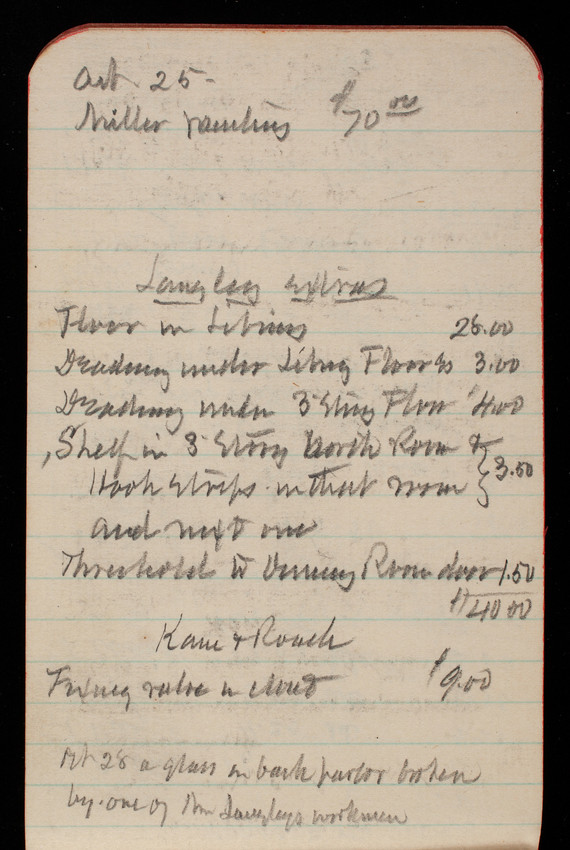 Oct 25-
Miller painting $70 00
Langley extras
Floor in Library 28.00
Deadning under Libray Floor 3.00
Deadning under 3 Story Floor 4.00
Shelf in 3 Story North Room &
Hook Strips in that room } 3.50
and next one
Threshold to Dining Room door 1.50
$40 00
Kane & Roach
Fixing valve in closet $9.00
Oct 28 a glass in back parlor broken
by one of Langleys workmen